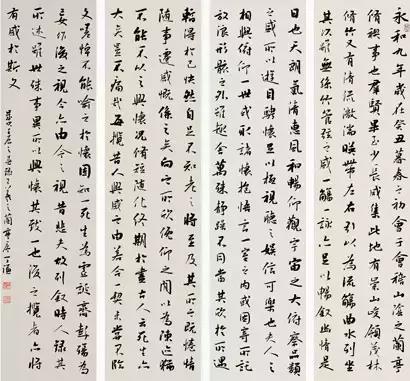 永和九年歲在癸丑暮春之初會于會稽山陰之蘭亭
脩禊事也羣賢畢至少長咸集此地有崇山峻領茂林
脩竹又有清流激湍暎帶左右引以為流觴曲水列坐
其次雖無絲竹管弦之盛一觴一詠亦足以暢敘幽情是
日也天朗氣清惠風和暢仰觀宇宙之大俯察品類
之盛所以遊目騁懷足以極視聽之娛信可樂也夫人之
相與俯仰一世或取諸懷抱悟言一室之內或因寄所託
放浪形骸之外雖趣舍萬殊靜躁不同當其欣於所遇
暫得於己快然自足不知老之將至及其所之既惓情
隨事遷感慨係之矣向之所欣俛仰之間以為陳迹猶
不能不以之興懷況脩短隨化終期於盡古人云死生亦
大矣豈不痛哉每攬昔人興感之由若合一契未嘗不臨
文嗟悼不能喻之於懷固知一死生為虛誕齊彭殤為
妄作後之視今亦由今之視昔悲夫故列敘時人錄其
所述雖世殊事異所以興懷其致一也後之攬者亦將
有感於斯文
之蘭亭序